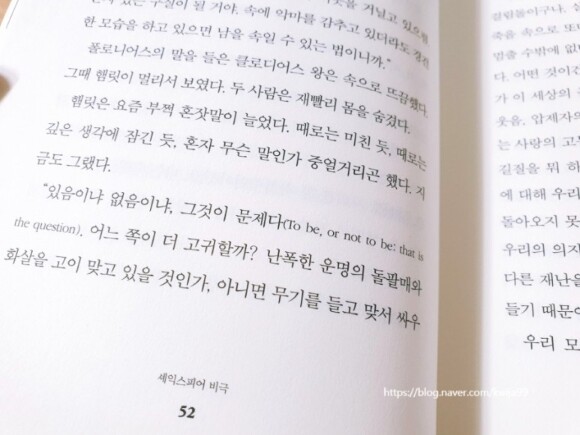 한 모습을 하고 있으면 남을 속일 수 있는 법이니까."
폴로니어스의 말을 들은 클로디어스 왕은 속으로 뜨끔했다.
그때 햄릿이 멀리서 보였다. 두 사람은 재빨리 몸을 숨겼다.
햄릿은 요즘 부쩍 혼잣말이 늘었다. 때로는 미친 듯, 때로는
깊은 생각에 잠긴 듯, 혼자 무슨 말인가 중얼거리곤 했다. 지
금도 그랬다.
"있음이냐 없음이냐, 그것이 문제다(To be, or not to be: that is
the question). 어느 쪽이 더 고귀할까? 난폭한 운명의 돌팔매와
화살을 고이 맞고 있을 것인가, 아니면 무기를 들고 맞서 싸우
셰익스피어 비극
52
죽음 속으로
멈출 수밖에 없
다. 어떤 것이
가 이 세상의
웃음, 압제자의
는 사랑의 고
길질을 뭐 하
에 대해 우리
돌아오지 못
우리의 의지
다른 재난을
들기 때문에
우리 모
https://blog.naver.com/